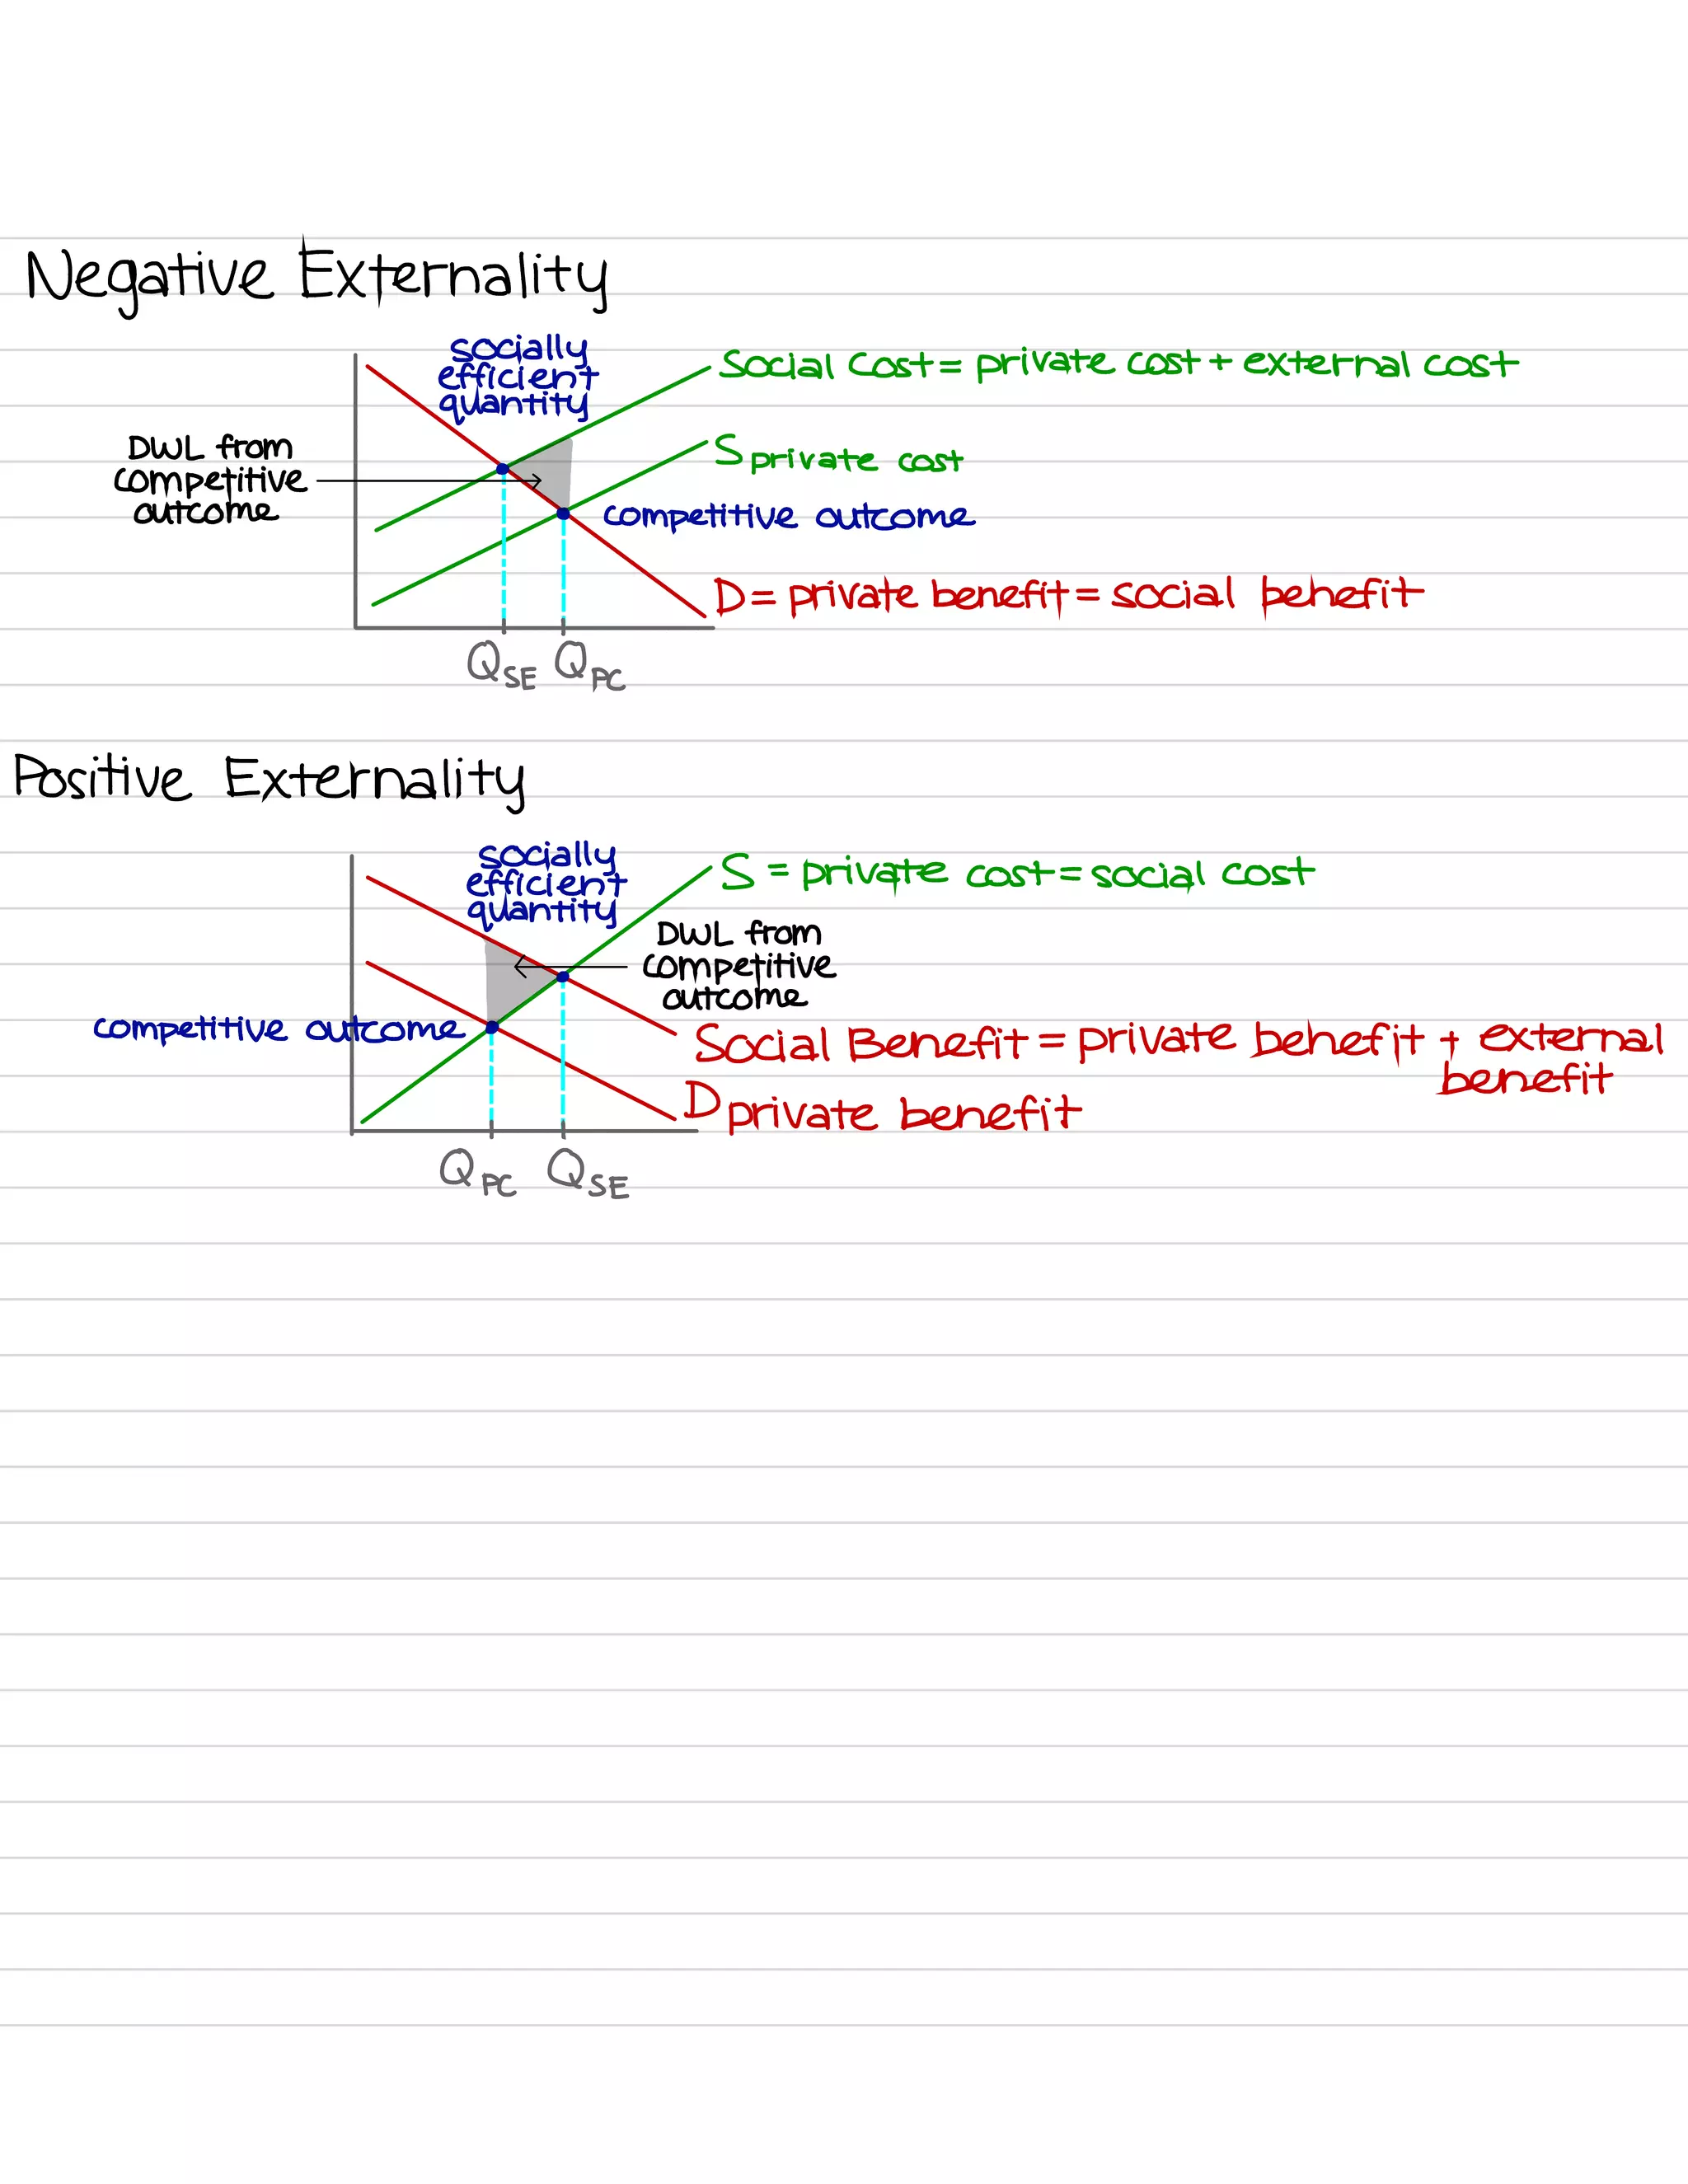 Negative Externality
socially
efficient
quantity
Social Cost = private cost + external cost
DWL from
competitive
outcome
S private cost
competitive outcome
D = private benefit = social benefit
QSE QPC
Positive Externality
socially
efficient
quantity
S = private cost = social cost
DWL from
competitive
outcome
competitive outcome
Social Benefit = private benefit + external
benefit
D private benefit
QPC QSE